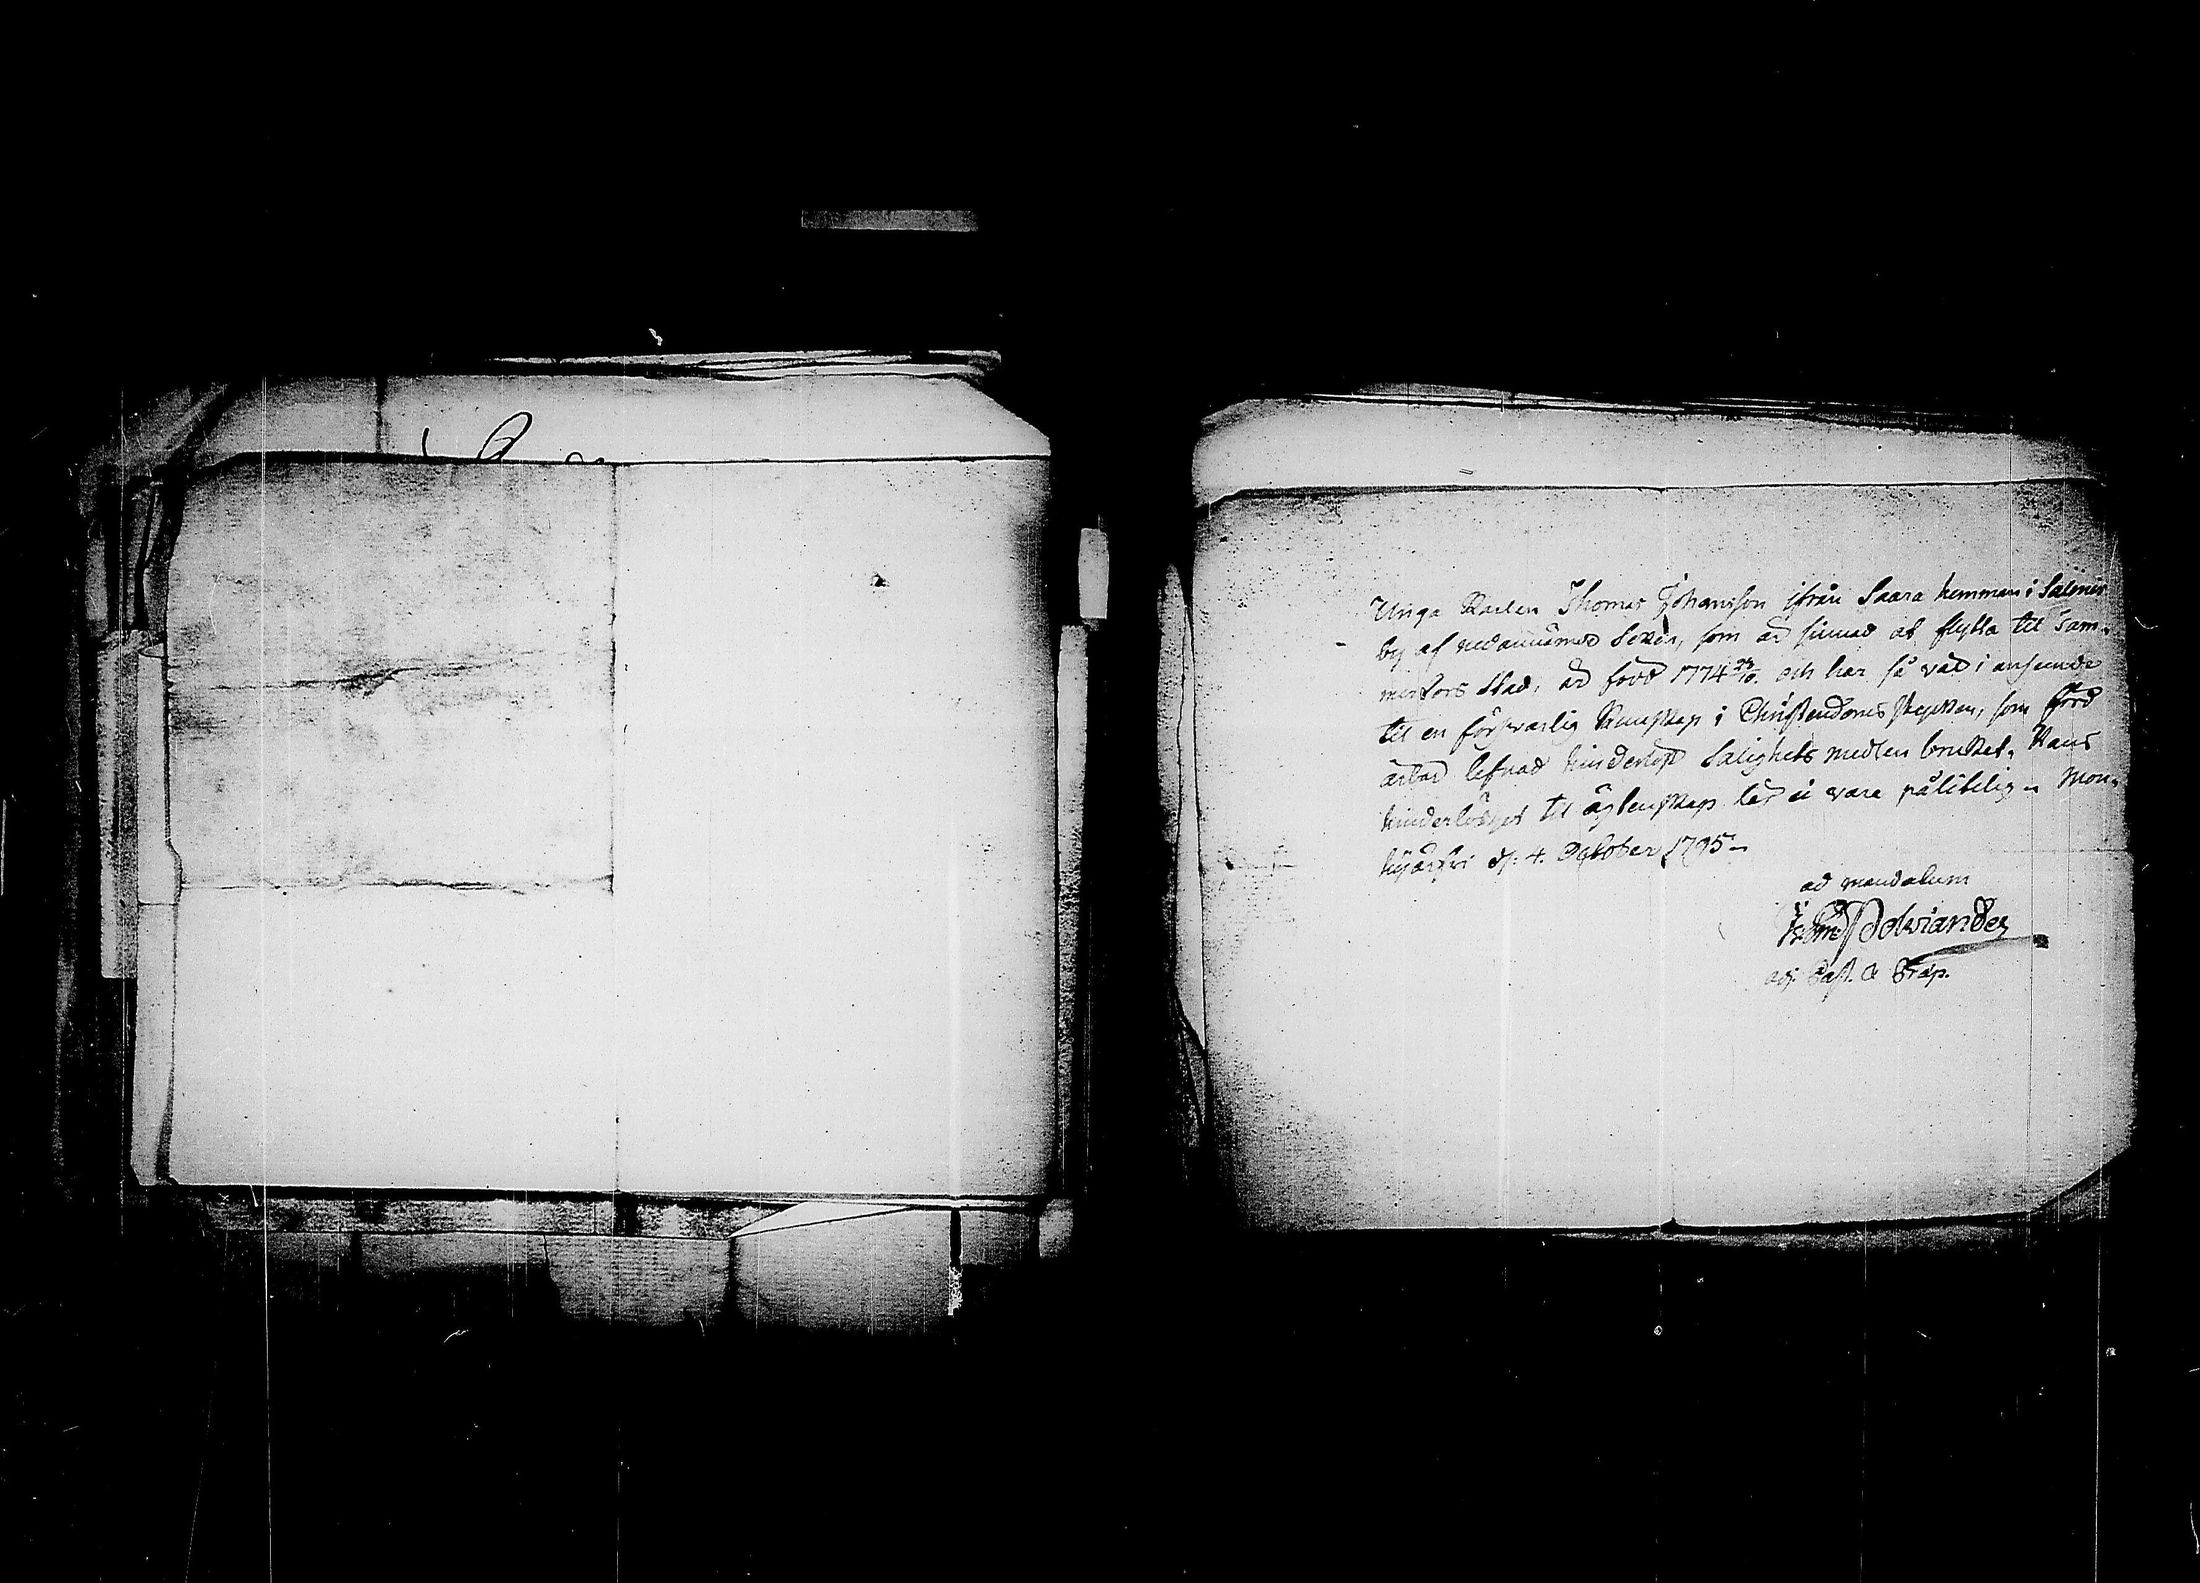 Unga Karlen Thomas Johansson ifrån Saara hemman i Salmis
by af nedannämde Sokn, som är sinnad at flytta til Tam-
merfors Stad, är född 1774 24/10. och har så väl i anseende
til en försvarlig Kunskap i Christendoms stycken, som förd
ärbar lefnad hinderlöst Salighets medlen brukat. Hans
hinderlöshet til Ägtenskap lär ei vara pålitelig. Mou-
hijärfvi d: 4. October 1795.
ad mandatum
Adriander
adj. Past. & Præp.